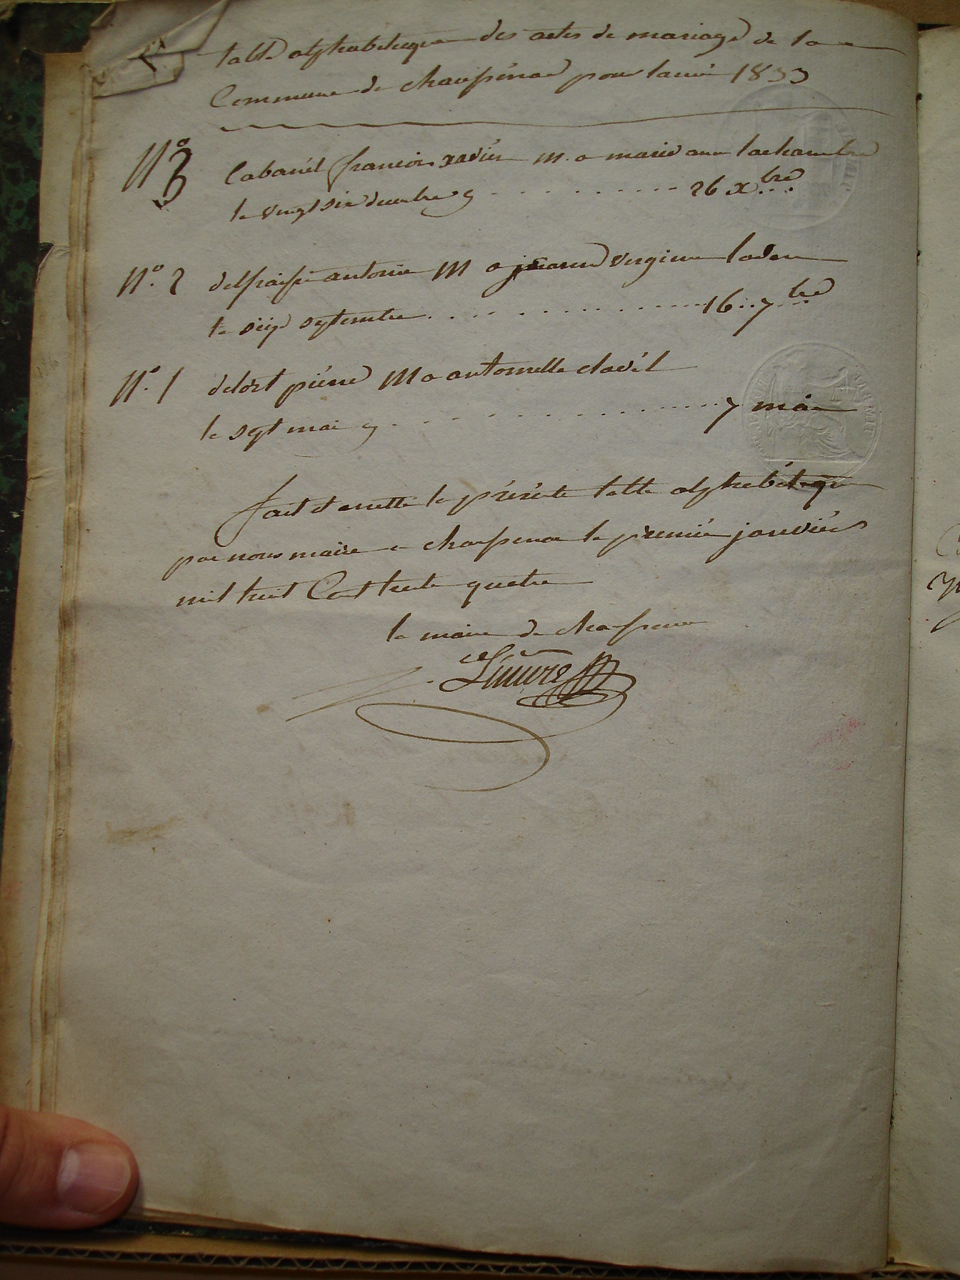 table alphabetique des actes de mariage de la
Commune de chaussenac pour lanné 1833
N° 3 Cabanél francois xavier m. a marie anne lachambre
le vingt six decembre 26 xbre
N° 2 delfraisse antoine M a jeanne virginie
le seize septembre 16 7bre
N° 1 delort piérre M a antoinette clavél
le sept mai 7 mai
fait et arretté la présente table alphabétique
par nous maire a chaussenac le premié janviér
mil huit Cent trente quatre
le maire de chaussenac